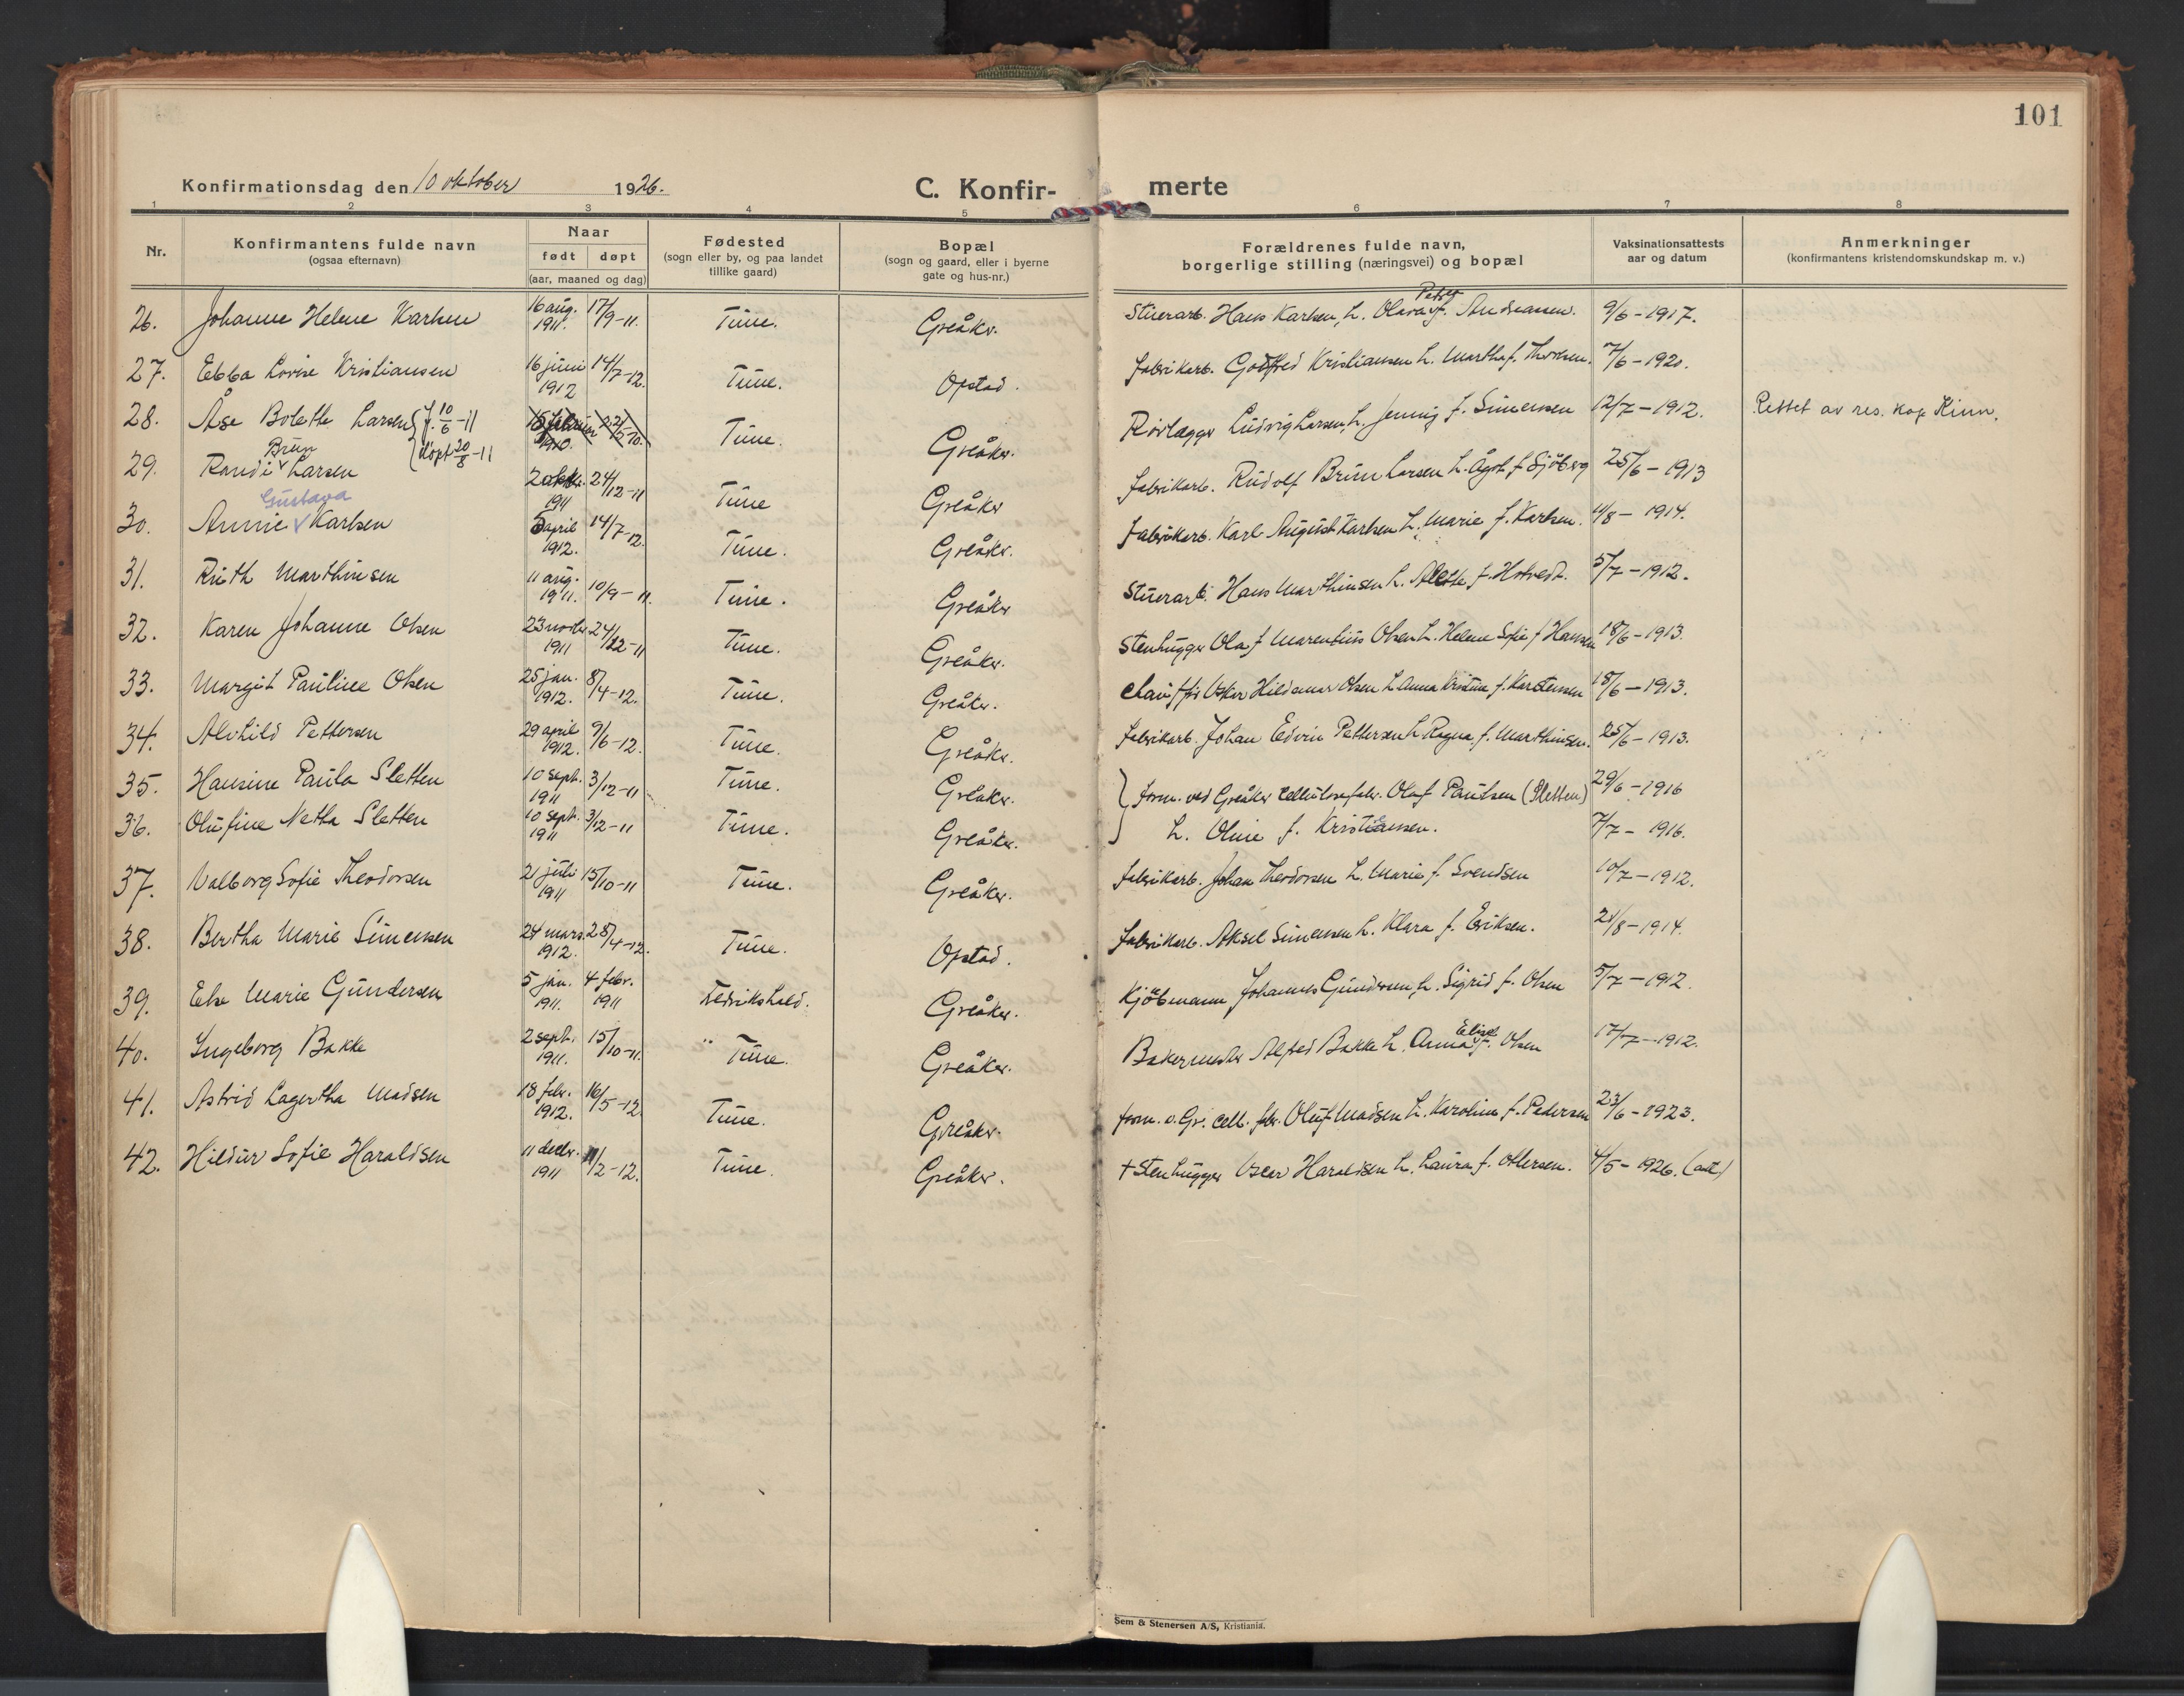 101
Konfirmationsdag den 10 oktober 1926.
C. Konfir- merte
1 2 3 4 5 6 7 8
Nr.
Konfirmantens fulde navn
(ogsaa efternavn)
Naar
født døpt
(aar, maaned og dag)
Fødested
(sogn eller by, og paa landet
tillike gaard)
Bopæl
(sogn og gaard, eller i byerne
gate og hus-nr.)
Forældrenes fulde navn,
borgerlige stilling (næringsvei) og bopæl
Vaksinationsattests
aar og datum
Anmerkninger
(konfirmantens kristendomskundskap m. v.)
26. Johanne Helene Karlsen 16 aug. 1911. 17/9-11. Tune. Greåker. Stuerarb. Hans Karlsen, h. Olava Petra f. Andreassen. 9/6-1917.
27. Ebba Lovise Kristiansen 16 juni 1912 14/7-12. Tune. Opstad. fabrikarb. Gottfred Kristiansen h. Martha f. Thorsen. 7/6-1920.
28. Åse Bolette Larsen { f. 10/6-11 døpt 20/8-11 Tune. Greåker. Rörlægger Ludvig Larsen, h. Jenny f. Simensen 12/7-1912. Rettet av res. kap Kinn.
29. Randi Brun Larsen 2 oktbr. 1911 24/12-11 Tune Greåker fabrikarb. Rudolf Brun Larsen h. Ågot f. Sjöberg 25/6-1913
30. Annie Gustava Karlsen 5 april 1912. 14/7-12. Tune. Greåker. fabrikarb. Karl August Karlsen h. Marie f. Karlsen. 4/8-1914.
31. Ruth Marthinsen 11 aug. 1911. 10/9-11. Tune. Greåker Stuerarb. Hans Marthinsen h. Alette f. Hotvedt. 5/7-1912.
32. Karen Johanne Olsen 23 novbr 1911 24/12-11 Tune. Greåker. Stenhugger Olaf Marenbius Olsen h. Helene Sofie f Hansen 18/6-1913.
33. Margit Pauline Olsen 25 jan. 1912. 8/4-12. Tune. Greåker. Chauffør Oskar Hildemar Olsen h. Anna Kristine f. Karstensen 18/6-1913.
34. Alvhild Pettersen 29 april 1912. 9/6-12. Tune. Greåker. fabrikarb. Johan Edvin Pettersen h Ragna f. Marthinsen. 25/6-1913.
35. Hansine Paula Sletten 10 sept. 1911 3/12-11 Tune. Greåker. } form. ved Greåker Cellulosefabr. Olaf Paulsen (Sletten) 29/6-1916
36. Olufine Netta Sletten 10 sept. 1911 3/12-11 Tune. Greåker. h. Oline f. Kristiansen. 7/7-1916.
37. Valborg Sofie Theodorsen 21 juli 1911 15/10-11 Tune. Greåker. fabrikarb. Johan Theodorsen h. Marie f. Svendsen 10/7-1912.
38. Bertha Marie Simensen 24 mars 1912. 28/4-12. Tune. Opstad. fabrikarb. Aksel Simensen h. Klara f. Eriksen. 21/8-1914.
39. Else Marie Gundersen 5 jan. 1911. 4 febr. 1911 Fredrikshald. Greåker. Kjöbmann Johannes Gundersen h. Sigrid f. Olsen 5/7-1912.
40. Ingeborg Bakke 2 sept. 1911. 15/10-11. " Tune. Greåker. Bakermester Alfred Bakke h. Anna Elise f. Olsen 17/7-1912.
41. Astrid Lagertha Madsen 18 febr. 1912. 16/5-12. Tune. Greåker. form. v. Gr. cell. fabr. Oluf Madsen h. Karoline f. Pedersen 23/6-1923.
42. Hildur Sofie Haraldsen 11 decbr. 1911 11/2-12. Tune. Greåker. + Stenhugger Oscar Haraldsen h. Laura f. Ottersen. 4/5-1926. (att)
Sem & Stenersen A/S, Kristiania.